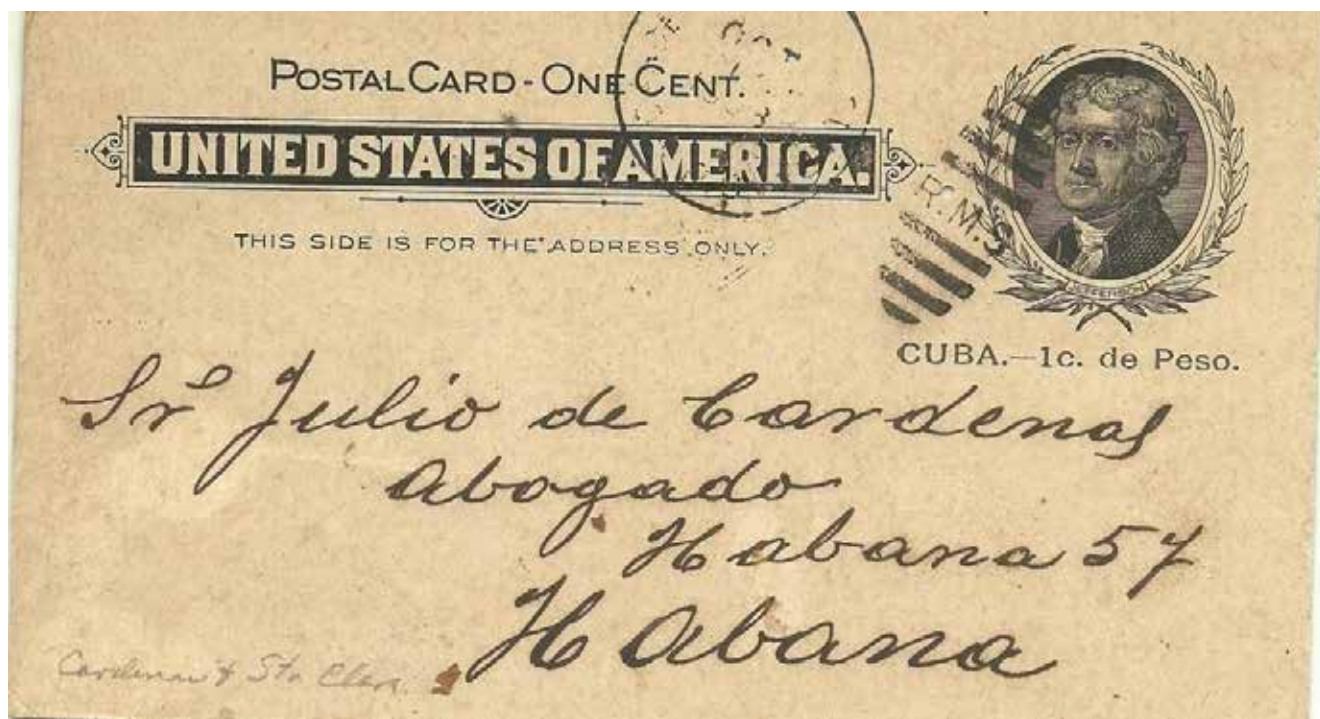 OCT
POSTAL CARD - ONE CENT.
UNITED STATES OF AMERICA.
THIS SIDE IS FOR THE ADDRESS ONLY.
R.M.S
JEFFERSON
CUBA.—1c. de Peso.
Sr Julio de Cardenas
Abogado
Habana 57
Habana
Cardenas & Sta Clara